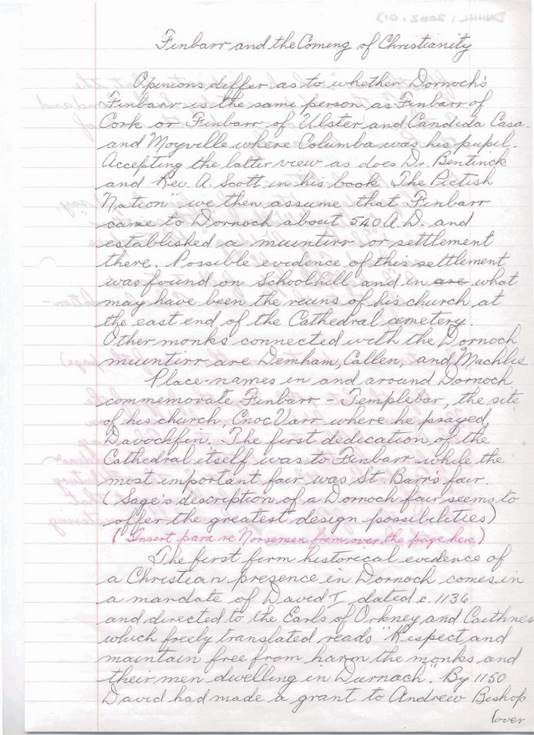 DNHHL: 2002.013
Finbarr and the Coming of Christianity
Opinions differ as to whether Dornoch's
Finbarr is the same person as Finbarr of
Cork or Finbarr of Ulster and Candida Casa
and Moyville where Columba was his pupil.
Accepting the latter view as does Dr. Bentinck
and Rev. A. Scott in his book "The Pictish
Nation" we then assume that Finbarr
came to Dornoch about 540 A.D. and
established a muuntirr or settlement
there. Possible evidence of this settlement
was found on Schoolhill and in are what
may have been the ruins of his church at
the east end of the Cathedral cemetery.
Other monks connected with the Dornoch
muintirr are Demham, Callen, and Machlie
Place-names in and around Dornoch
commemorate Finbarr - Templebar, the site
of his church, Cnoc Varr where he prayed,
Davochfin. The first dedication of the
Cathedral itself was to Finbarr while the
most important fair was St. Barr's fair.
(Sage's description of a Dornoch fair seems to
offer the greatest design possibilities)
(Insert para re Norsemen from over the page here)
The first firm historical evidence of
a Christian presence in Dornoch comes in
a mandate of David I dated c. 1136
and directed to the Earls of Orkney and Caithnes
which freely translated reads "Respect and
maintain free from harm the monks and
their men dwelling in Durnach. By 1150
David had made a grant to Andrew Bishop
(over